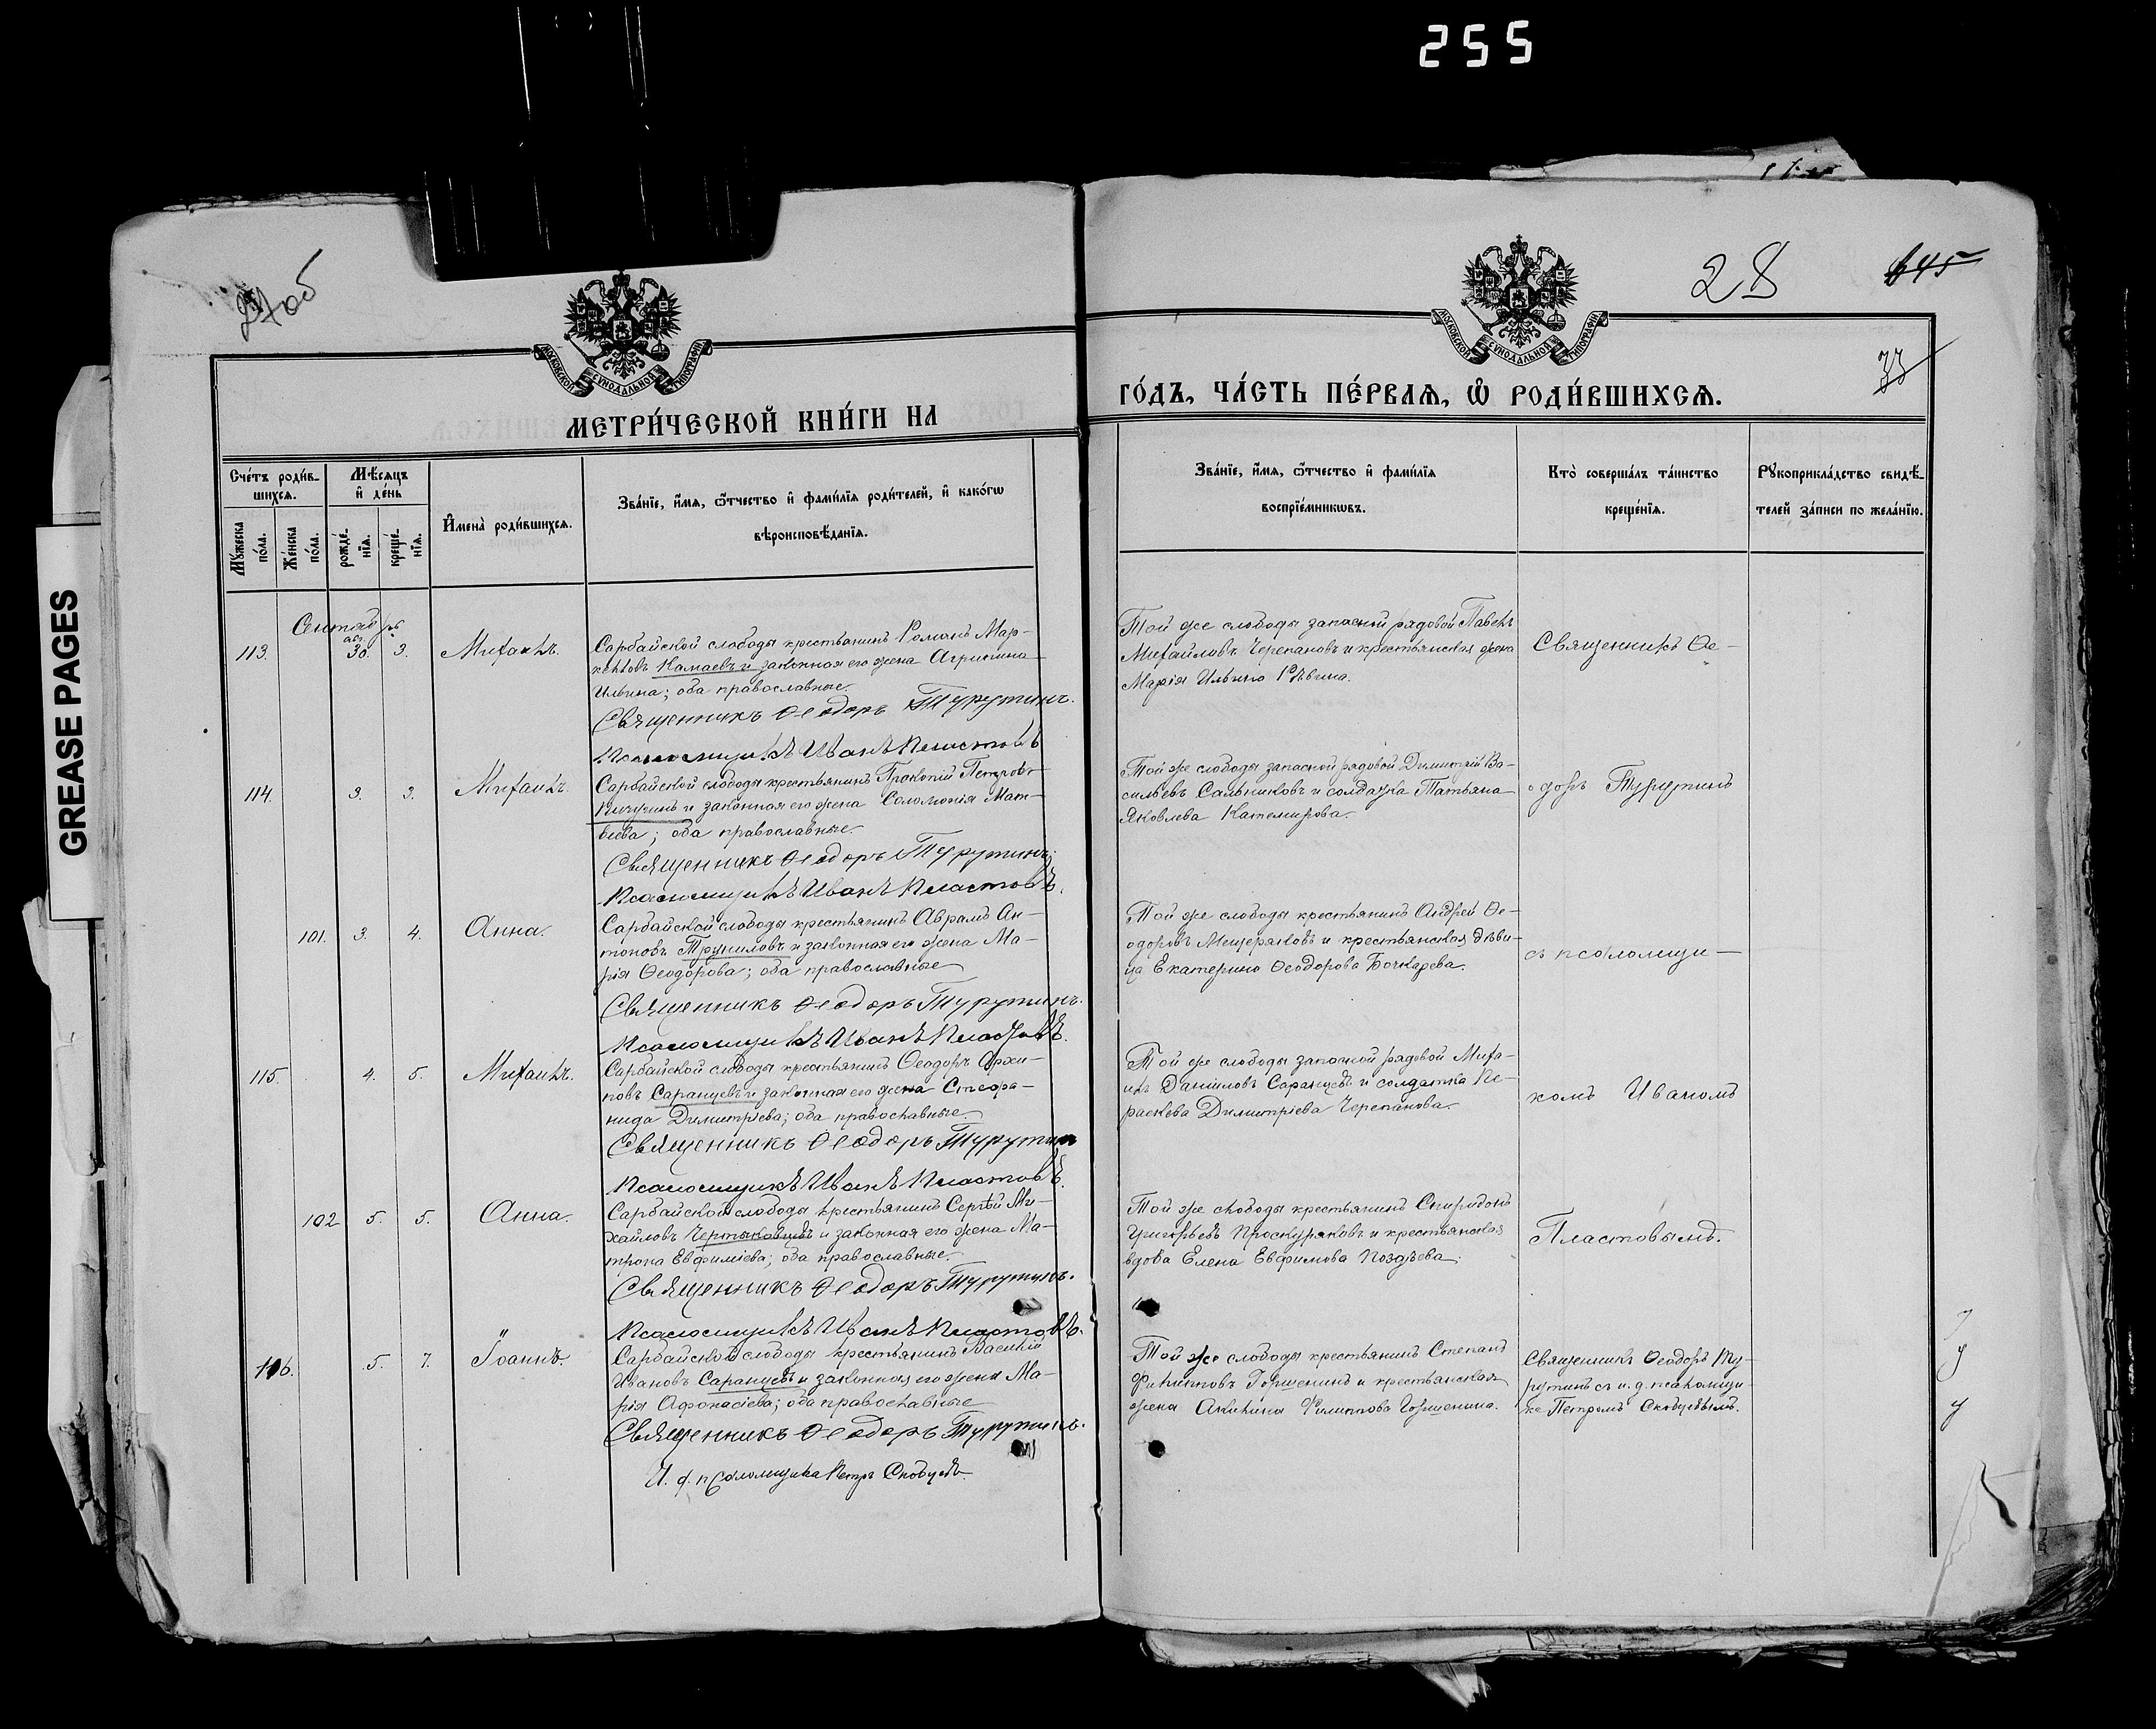 255
GREASE PAGES
27 об
28
645
33
МОСКОВСКОЙ СѴНОДАЛЬНОЙ ТИПОГРАФІИ
МОСКОВСКОЙ СѴНОДАЛЬНОЙ ТИПОГРАФІИ
МЕТРИ́ЧЕСКОЙ КНИ́ГИ НА
ГО́ДЪ, ЧА́СТЬ ПЕ́РВАЯ, Ѽ РОДИ́ВШИХСЯ.
Сче́тъ роди́в-
шихся.
Мѣ́сяцъ
и де́нь
Мꙋжеска
по́ла.
Же́нска
по́ла.
рожде́-
нїя.
креще́-
нїя.
И҆мена̀ роди́вшихся.
Зва́нїе, и҆́мя, ѻ҆́тчество и҆ фами́лїя роди́телей, и҆ како́гѡ
вѣроисповѣ́данїя.
Зва́нїе, и҆́мя, ѻ҆́тчество и҆ фами́лїя
воспрїе́мникѡвъ.
Кто̀ соверша́лъ та́инство
креще́нїя.
Рꙋкоприкла́дство свидѣ́-
телей за́писи по жела́нїю.
Сентябрь
авг.
113. 30. 3. Михаилъ.
Сарбайской слободы крестьянинъ Романъ Мар-
келовъ Камаевъ и законная его жена Агрипина
Ильина; оба православные.
Священникъ Ѳеодоръ Турутинъ.
Псаломщикъ Иванъ Пластовъ
Той же слободы запасной рядовой Павелъ
Михайловъ Черепановъ и крестьянская жена
Марія Ильина Рѣвина.
Священникъ Ѳе-
114. 3. 3. Михаилъ
Сарбайской слободы крестьянинъ Прокопій Петровъ
Пичугинъ и законная его жена Соломонія Мат-
веева; оба православные.
Священникъ Ѳеодоръ Турутинъ.
Псаломщикъ Иванъ Пластовъ.
Той же слободы запасной рядовой Димитрій Ва-
сильевъ Сальниковъ и солдатка Татьяна
Яковлева Катемирова.
одоръ Турутинъ
101. 3. 4. Анна.
Сарбайской слободы крестьянинъ Аврамъ Ан-
тоновъ Трушиловъ и законная его жена Ма-
рія Ѳеодорова; оба православные
Священникъ Ѳеодоръ Турутинъ.
Псаломщикъ Иванъ Пластовъ.
Той же слободы крестьянинъ Андрей Ѳе-
одоровъ Мещеряковъ и крестьянская дѣви-
ца Екатерина Ѳеодорова Бочкарева.
съ псаломщи-
115. 4. 5. Михаилъ.
Сарбайской слободы крестьянинъ Ѳеодоръ Архи-
повъ Саранцевъ и законная его жена Стефа-
нида Димитріева; оба православные.
Священникъ Ѳеодоръ Турутинъ
Псаломщикъ Иванъ Пластовъ.
Той же слободы запасной рядовой Миха-
илъ Даниловъ Саранцевъ и солдатка Па-
раскева Димитріева Черепанова.
комъ Иваномъ
102 5. 5. Анна.
Сарбайской слободы крестьянинъ Сергѣй Ми-
хайловъ и законная его жена Ма-
трона Евфиміева; оба православные.
Священникъ Ѳеодоръ Турутинъ.
Псаломщикъ Иванъ Пластовъ.
Той же слободы крестьянинъ Спиридонъ
Григорьевъ Проскуряковъ и крестьянская
вдова Елена Евфимова Поздѣева.
Пластовымъ.
116. 5. 7. Іоаннъ.
Сарбайской слободы крестьянинъ Василій
Ивановъ Саранцевъ и законная его жена Ма-
рія Афонасіева; оба православные
Священникъ Ѳеодоръ Турутинъ.
И. д. псаломщика Петръ Скобцевъ
Той же слободы крестьянинъ Степанъ
Филипповъ Горшенинъ и крестьянская
жена Акилина Филиппова Горшенина.
Священникъ Ѳеодоръ Ту-
рутинъ съ и. д. псаломщи-
ка Петромъ Скобцевымъ.